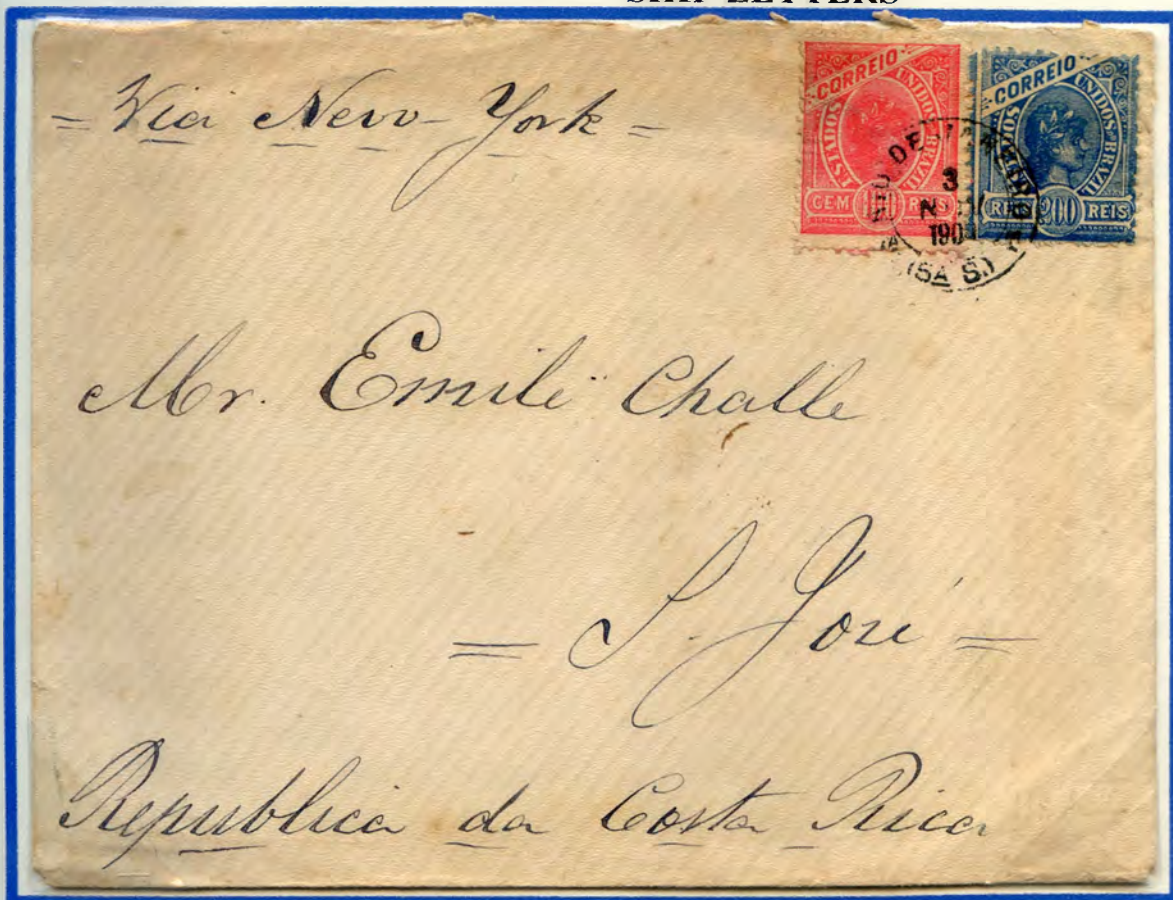 SHIP LETTERS
= Via New-York =
CORREIO
ESTADOS UNIDOS DO BRAZIL
CEM 100 REIS
CORREIO
ESTADOS UNIDOS DO BRAZIL
REIS 200 REIS
RIO DE JANEIRO
3
190
(5A S.)
Mr. Emile Challe
= S. José =
Republica da Costa Rica